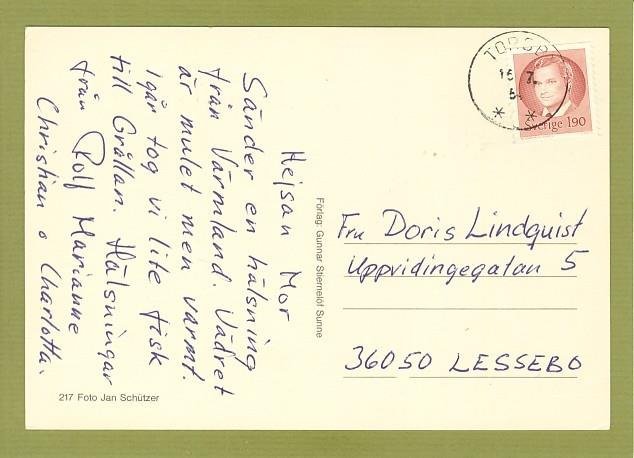 Hejsan Mor
Sänder en hälsning
från Värmland. Vädret
är mulet men varmt.
Igår tog vi lite fisk
till Grållan. Hälsningar
från Rolf Marianne
Christian o Charlotta.
217 Foto Jan Schützer
Förlag: Gunnar Stiernelöf Sunne
TORSBY
16 7.
Sverige 190
Fru Doris Lindquist
Uppvidingegatan 5
36050 LESSEBO